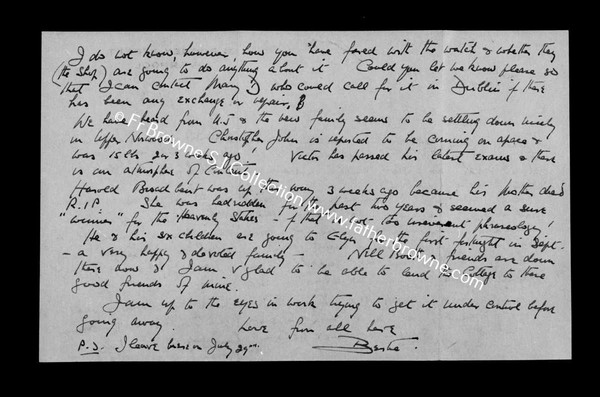 I do not know, however, how you have fared with the watch & whether they
(the shop) are going to do anything about it Could you let me know please so
that I can contact Mary D who could call for it in Dublin if there
has been any exchange or repair.
We have heard from U.S & the new family seems to be settling down nicely
in Upper Norwood Christopher John is reported to be coming on apace &
was 15 lbs 2 or 3 weeks ago! Victor has passed his latest exams & there
is an atmosphere of
Harold Broadbent was up this way 3 weeks ago because his Mother died
R.I.P. She was bedridden for the past two years & seemed a sure
"winner" for the Heavenly Stakes - if that is not too irreverent phraseology!
He & his six children are going to for the first fortnight in Sept.
- a very happy & devoted family - friends are down
there now & I am v glad to be able to lend the Cottage to these
good friends of mine.
I am up to the eyes in work trying to get it under control before
going away. Love from all here
P.S. I leave here on July 29th.
© Fr Browne S J Collection www.fatherbrowne.com